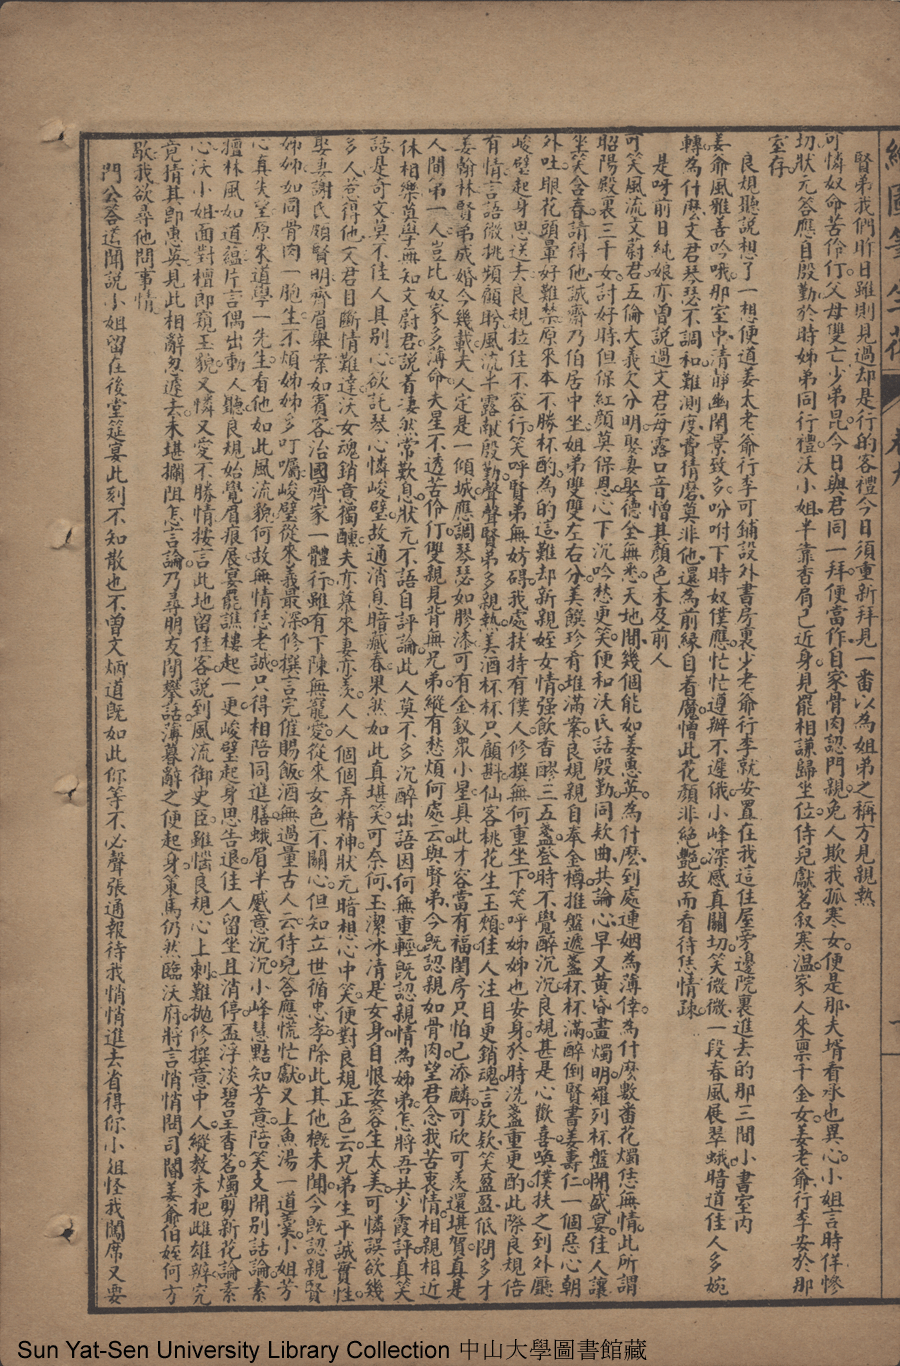 繪圖筆生花 卷九
賢弟我們昨日雖則見過却是行的客禮今日須重新拜見一番以為姐弟之稱方見親熱
可憐奴命苦伶仃父母雙亡少弟昆今日與君同一拜便當作自家骨肉認門親免人欺我孤寒女便是那夫壻看承也異心小姐言時佯慘
切狀元答應自殷勤於時姊弟同行禮沃小姐半靠香肩己近身見罷相謙歸坐位侍兒獻茗叙寒温家人來禀千金女姜老爺行李安於那
室存
良規聽說想了一想便道姜太老爺行李可鋪設外書房裏少老爺行李就安置在我這住屋旁邊院裏進去的那三間小書室內
姜爺風雅善吟哦那室中清靜幽閒景致多吩咐下時奴僕應忙忙遵辦不遲俄小峰深感真關切笑微微一段春風展翠蛾暗道佳人多婉
轉為什麽文君琴瑟不調和難測度費猜磨莫非他還為前緣自着魔憎此花顏非絕艷故而看待恁情疎
是呀前日純娘亦曾說過文君每露口音憎其顏色本及前人
可笑風流文蔚君五倫大義欠分明娶妻娶德全無悉天地間幾個能如姜惠英為什麽到處連姻為薄倖為什麽數番花燭恁無情此所謂
昭陽殿裏三千女討好時但保紅顏莫保恩心下沉吟愁更笑便和沃氏話殷勤同欵曲共論心早又黃昏畫燭明羅列杯盤開盛宴佳人讓
坐笑含春請得他誠齋乃伯居中坐姐弟雙雙左右分美饌珍肴堆滿案良規親自奉金樽推盤遞盞杯杯滿醉倒賢書姜壽仁一個惡心朝
外吐眼花頭暈好難禁原來本不勝杯酌為的這難却新親姪女情强飲香醪三五盞登時不覺醉沉沉良規甚是心歡喜喚僕扶之到外廳
峻壁起身思送去良規拉住不容行笑呼賢弟無妨碍我處扶持有僕人修撰無何重坐下笑呼姊姊也安身於時洗盞重更酌此際良規倍
有情言語微挑頻顧盼風流半露獻殷勤聲聲賢弟多親熱美酒杯杯只顧斟仙客桃花生玉頰佳人注目更銷魂言欵欵笑盈盈低問多才
姜翰林賢弟成婚今幾載夫人定是一傾城應調琴瑟如膠漆可有金釵衆小星具此才容當有福閨房只怕己添麟可欣可羨還堪賀真是
人間第一人豈比奴家多薄命夫星不透苦伶仃雙親見背無兄弟縱有愁煩何處云與賢弟今既認親如骨肉望君念我苦衷情相親相近
休相樂莫學無知文蔚君說着淒然常歎息狀元不語自評論此人莫不多沉醉出語因何無重輕既認親情為姊弟怎將吾共少霞評真笑
話是奇文莫不佳人具別心欲託琴心憐峻壁故通消息暗藏春果然如此真堪笑可奈何玉潔冰清是女身自恨姿容生太美可憐誤欲幾
多人惹得他文君目斷情難達沃女魂銷意獨醺夫亦慕來妻亦羨人人個個弄精神狀元暗想心中笑便對良規正色云兄弟生平誠實性
娶妻謝氏頗賢明齊眉舉案如賓客冶國齊家一體行雖有下陳無寵愛從來女色不關心但知立世循忠孝除此其他概未聞今既認親賢
姊姊如同骨肉一胞生不煩姊姊多叮囑峻壁從來義最深修撰言完催賜飯酒無過量古人云侍兒答應慌忙獻又上魚湯一道羹小姐芳
心真失望原來道學一先生有他如此風流貌何故無情恁老誠只得相陪同進膳蛾眉半蹙意沉沉小峰慧點知芳意陪笑支開別話論素
檀林風如道蘊片言偶出動人聽良規始覺眉痕展宴罷譙樓起一更峻壁起身思告退佳人留坐且消停盃浮淡碧呈香茗燭剪新花論素
心沃小姐面對檀郎窺玉貌又憐又愛不勝情按言此地留佳客說到風流御史臣雖惱良規心上刺難抛修撰意中人縱教未把雌雄辨究
竟猜其卽惠英見此相辭忽遽去未堪攔阻怎言論乃尋朋友閒攀話薄暮辭之便起身策馬仍然臨沃府將言悄悄問司閽姜爺伯姪何方
歇我欲尋他問事情
門公答道聞說小姐留在後堂筵宴此刻不知散也不曾文炳道既如此你等不必聲張通報待我悄悄進去省得你小姐怪我闖席又要
Sun Yat-Sen University Library Collection 中山大學圖書館藏